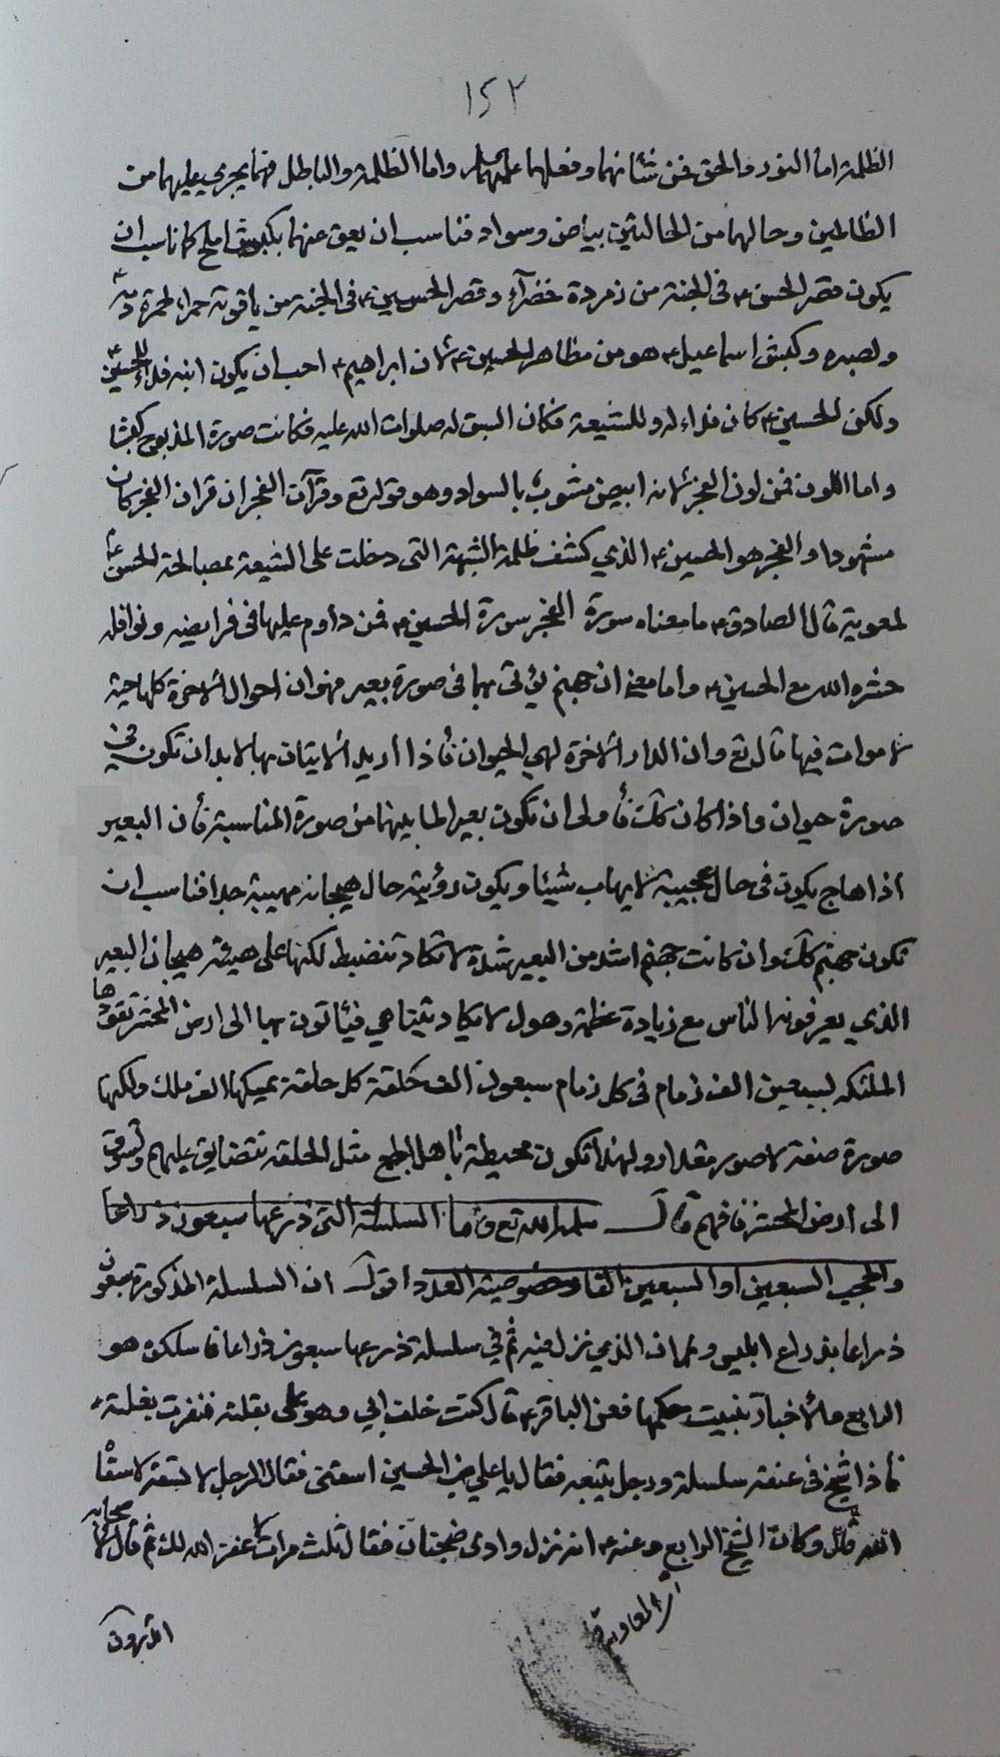 ١٥٢
الظلمة اما النور والحق فمن شأنهما وفعلهما عليهما السلام واما الظلمة والباطل فمما يجرى عليهما من
الظالمين وحالهما من الحالتين بياض وسواد فناسب ان يعق عنهما بكبش املح كما ناسب ان
يكون قصر الحسن ع فى الجنة من زمردة خضراء وقصر الحسين ع فى الجنة من ياقوتة حمراء لحمرة دمه
ولصبره وكبش اسماعيل ع هو من مظاهر الحسين ع لان ابراهيم ع احب ان يكون ابنه فداء للحسين ع
ولكن الحسين ع كان فداء له وللشيعة فكان السبق له صلوات الله عليه فكانت صورة المذبوح كبشا
واما اللون فمن لون الفجر لانه ابيض مشوب بالسواد وهو قوله تع وقرآن الفجر ان قران الفجر كان
مشهودا والفجر هو الحسين ع الذي كشف ظلمة الشبهة التى دخلت على الشيعة بمصالحة الحسن ع
لمعوية قال الصادق ع ما معناه سورة الفجر سورة الحسين ع فمن داوم عليها فى فرايضه ونوافله
حشره الله مع الحسين ع واما معنى ان جهنم يؤتى بها فى صورة بعير فهو ان احوال الاخرة كلها حية
لا موات فيها قال تع وان الدار الاخرة لهى الحيوان فأذا اريد الاتيان بها لابد ان تكون في
صورة حيوان واذا كان كك فأولى ان تكون بعيرا لما بينهما من صورة المناسبة فأن البعير
اذا هاج يكون فى حال عجيبة لا يهاب شيئا ويكون رؤيته حال هيجانه مهيبة جدا فناسب ان
تكون جهنم كك وان كانت جهنم اشد من البعير شدة لا تكاد تنضبط لكنها على هيئة هيجان البعير
الذي يعرفونه الناس مع زيادة عظمة وهول لا يكاد يتناهي فيأتون بها الى ارض المحشر تقودها
الملئكه بسبعين الف زمام فى كل زمام سبعون الف حلقة كل حلقة يمسكها الف ملك ولكنها
صورة صفة لا صورة مقدار ولهذا تكون محيطة بأهل الجمع مثل الحلقة تتضايق عليهم وتسوق
الى ارض المحشر فافهم قال سلمه الله تع وأما السلسلة التى ذرعها سبعون ذراعا
والحجب السبعين او السبعين الفا وخصوصية العدد اقول ان السلسلة المذكورة سبعون
ذراعا بذراع ابليس وان الذي نزل فيه ثم في سلسلة ذرعها سبعون ذراعا فاسلكوه هو
الرابع والاخبار تثبت حكمها فعن الباقر ع قال كنت خلف ابي وهو على بغلته فنفرت بغلته
فأذا شيخ فى عنقه سلسلة ورجل يتبعه فقال يا علي بن الحسين اسقنى فقال الرجل لا تسقه لا سقاه
الله قال وكان الشيخ الرابع وعنه ع انه نزل وادى ضجنان فقال ثلث مرات لا غفر الله لك ثم قال لاصحابه
اى لمعاوية
اتدرون